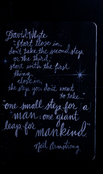 David Whyte
"Start close in,
don't take the second step
or the third,
start with the first
thing
close in,
the step you don't want
to take."
"one small step for a
man, one giant
leap for mankind"
Neil Armstrong